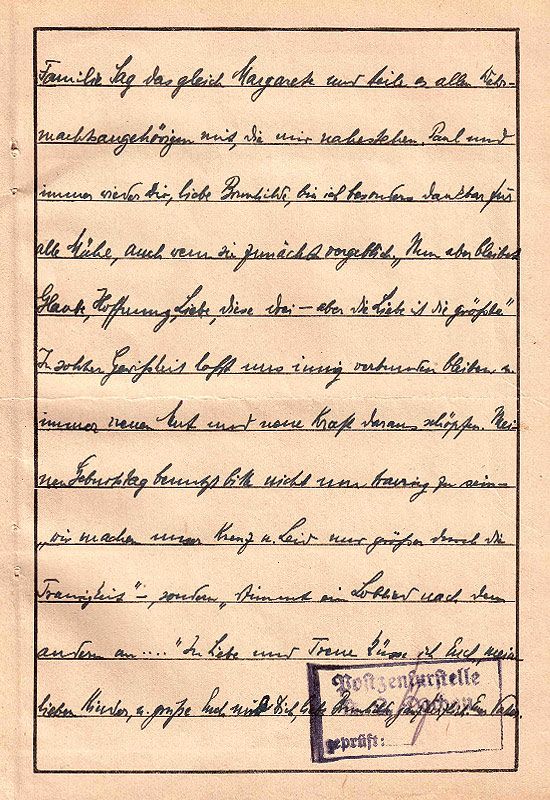 Familie. Sag das gleich Margarete und teile es allen Wehr-
machtsangehörigen mit, die mir nahestehen. Paul und
immer wieder Dir, liebe Brunhilde, bin ich besonders dankbar für
alle Mühe, auch wenn sie zunächst vergeblich. „Nun aber bleibet
Glaube, Hoffnung, Liebe, diese drei – aber die Liebe ist die größte“
In solcher Gewißheit laßt uns innig verbunden bleiben u.
immer neuen Mut und neue Kraft daraus schöpfen. Mei-
nen Geburtstag benutzt bitte nicht um traurig zu sein –
„wir machen unser Kreuz u. Leid nur größer durch die
Traurigkeit“ –, sondern „stimmt ein Loblied nach dem
andern an....“ In Liebe und Treue küsse ich Euch, meine
lieben Kinder, u. grüße Euch mit Dich, liebe Brunhilde, Euer Vater.
Postzensurstelle
geprüft: